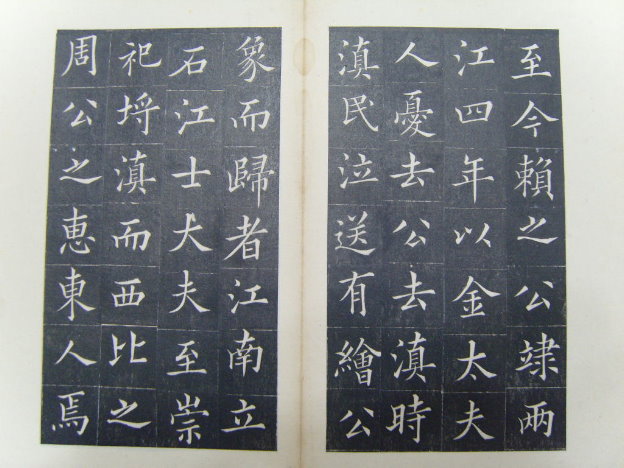 至今賴之公竦兩
江四年以金太夫
人憂去公去滇時
滇民泣送有繪公
象而歸者江南立
石江士大夫至崇
祀埒滇而西比之
周公之惠東人焉